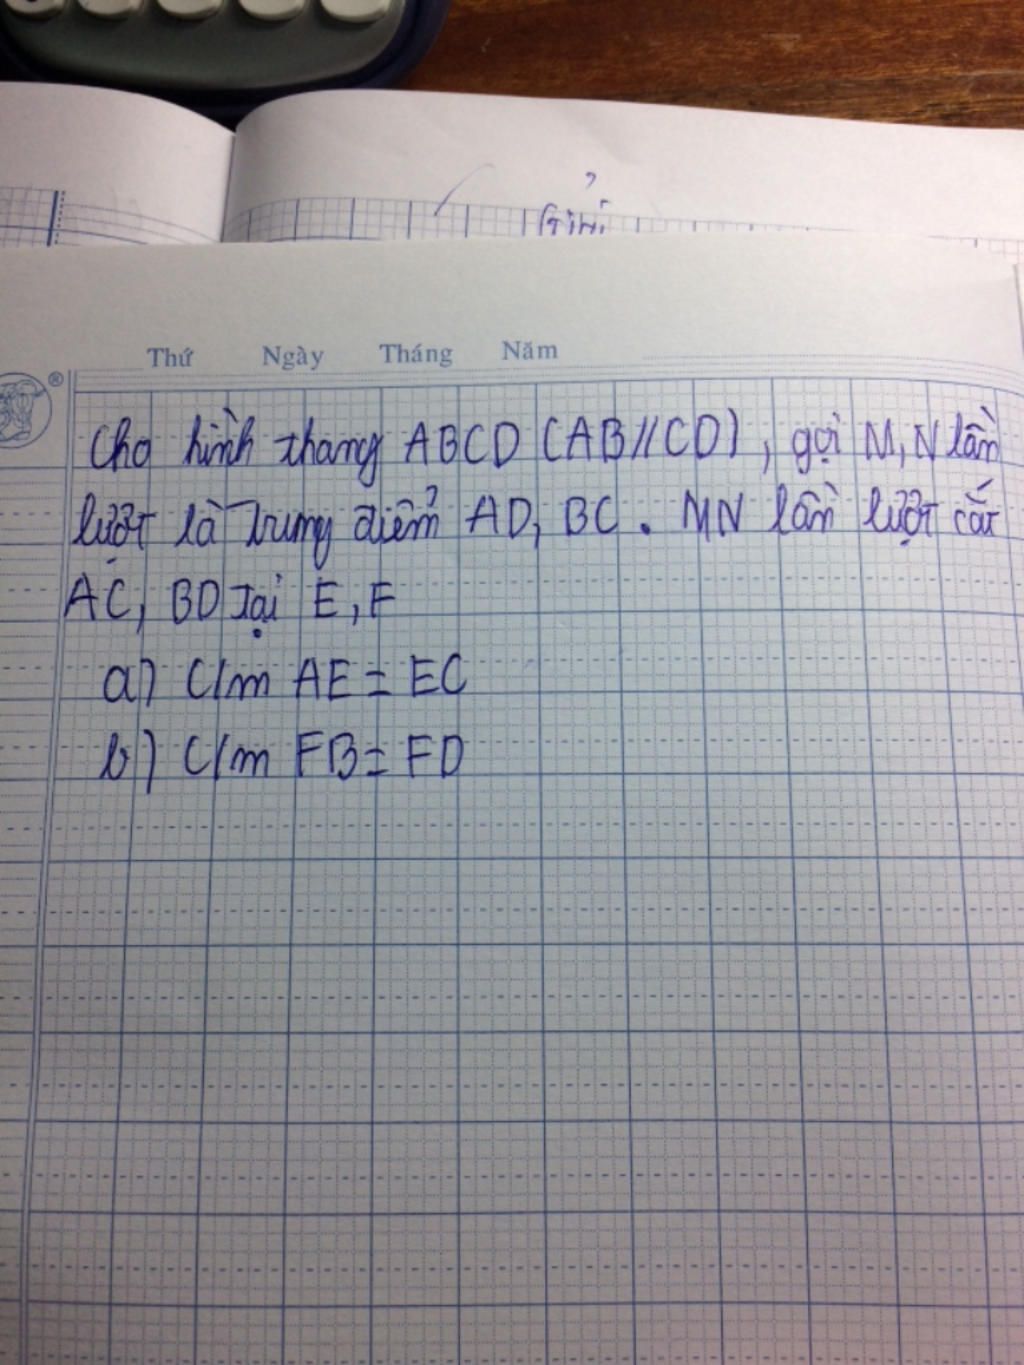 Giải
Thứ Ngày Tháng Năm
®
Cho hình thang ABCD (AB//CD), gọi M, N lần
lượt là trung điểm AD, BC. MN lần lượt cắt
AC, BD tại E, F
a) C/m AE = EC
b) C/m FB = FD